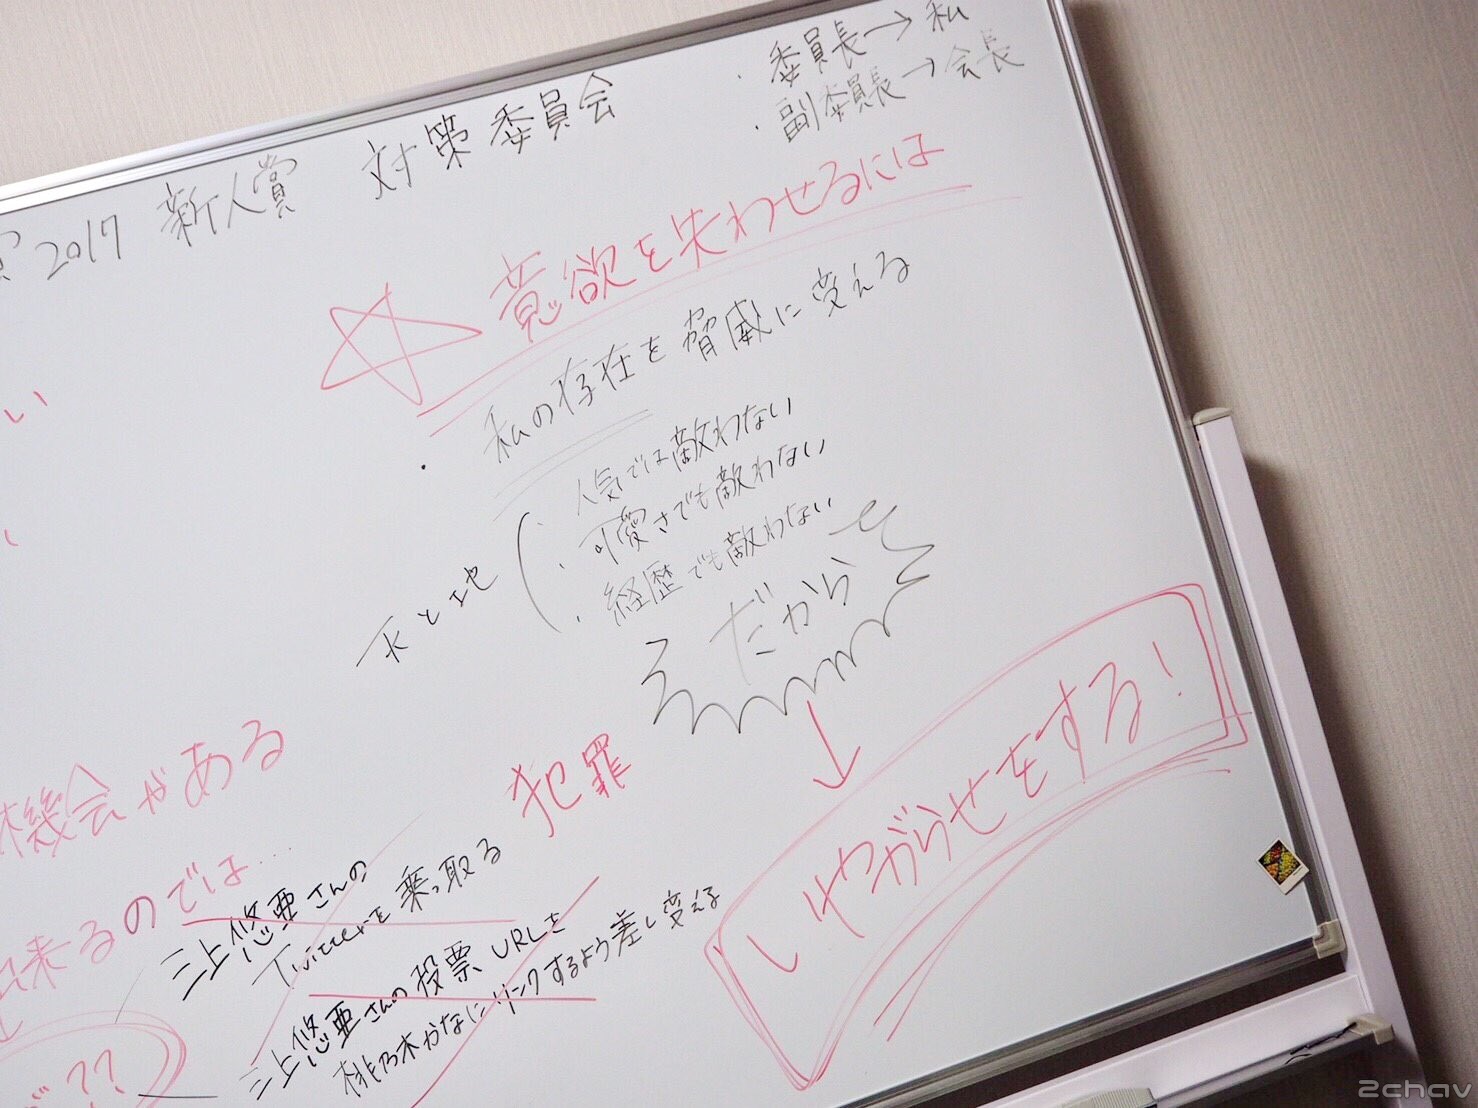 賞2017 新人賞 対策委員会
・委員長→私
・副委員長→会長
意欲を失わせるには
・私の存在を脅威に変える
天と地
・人気では敵わない
・可愛さでも敵わない
・経歴でも敵わない
だから
いやがらせをする!
い
い
機会がある
来るのでは…
??
犯罪
三上悠亜さんの
Twitterを乗っ取る
三上悠亜さんの投票URLを
桃乃木かなにリンクするよう差し変える
2chav